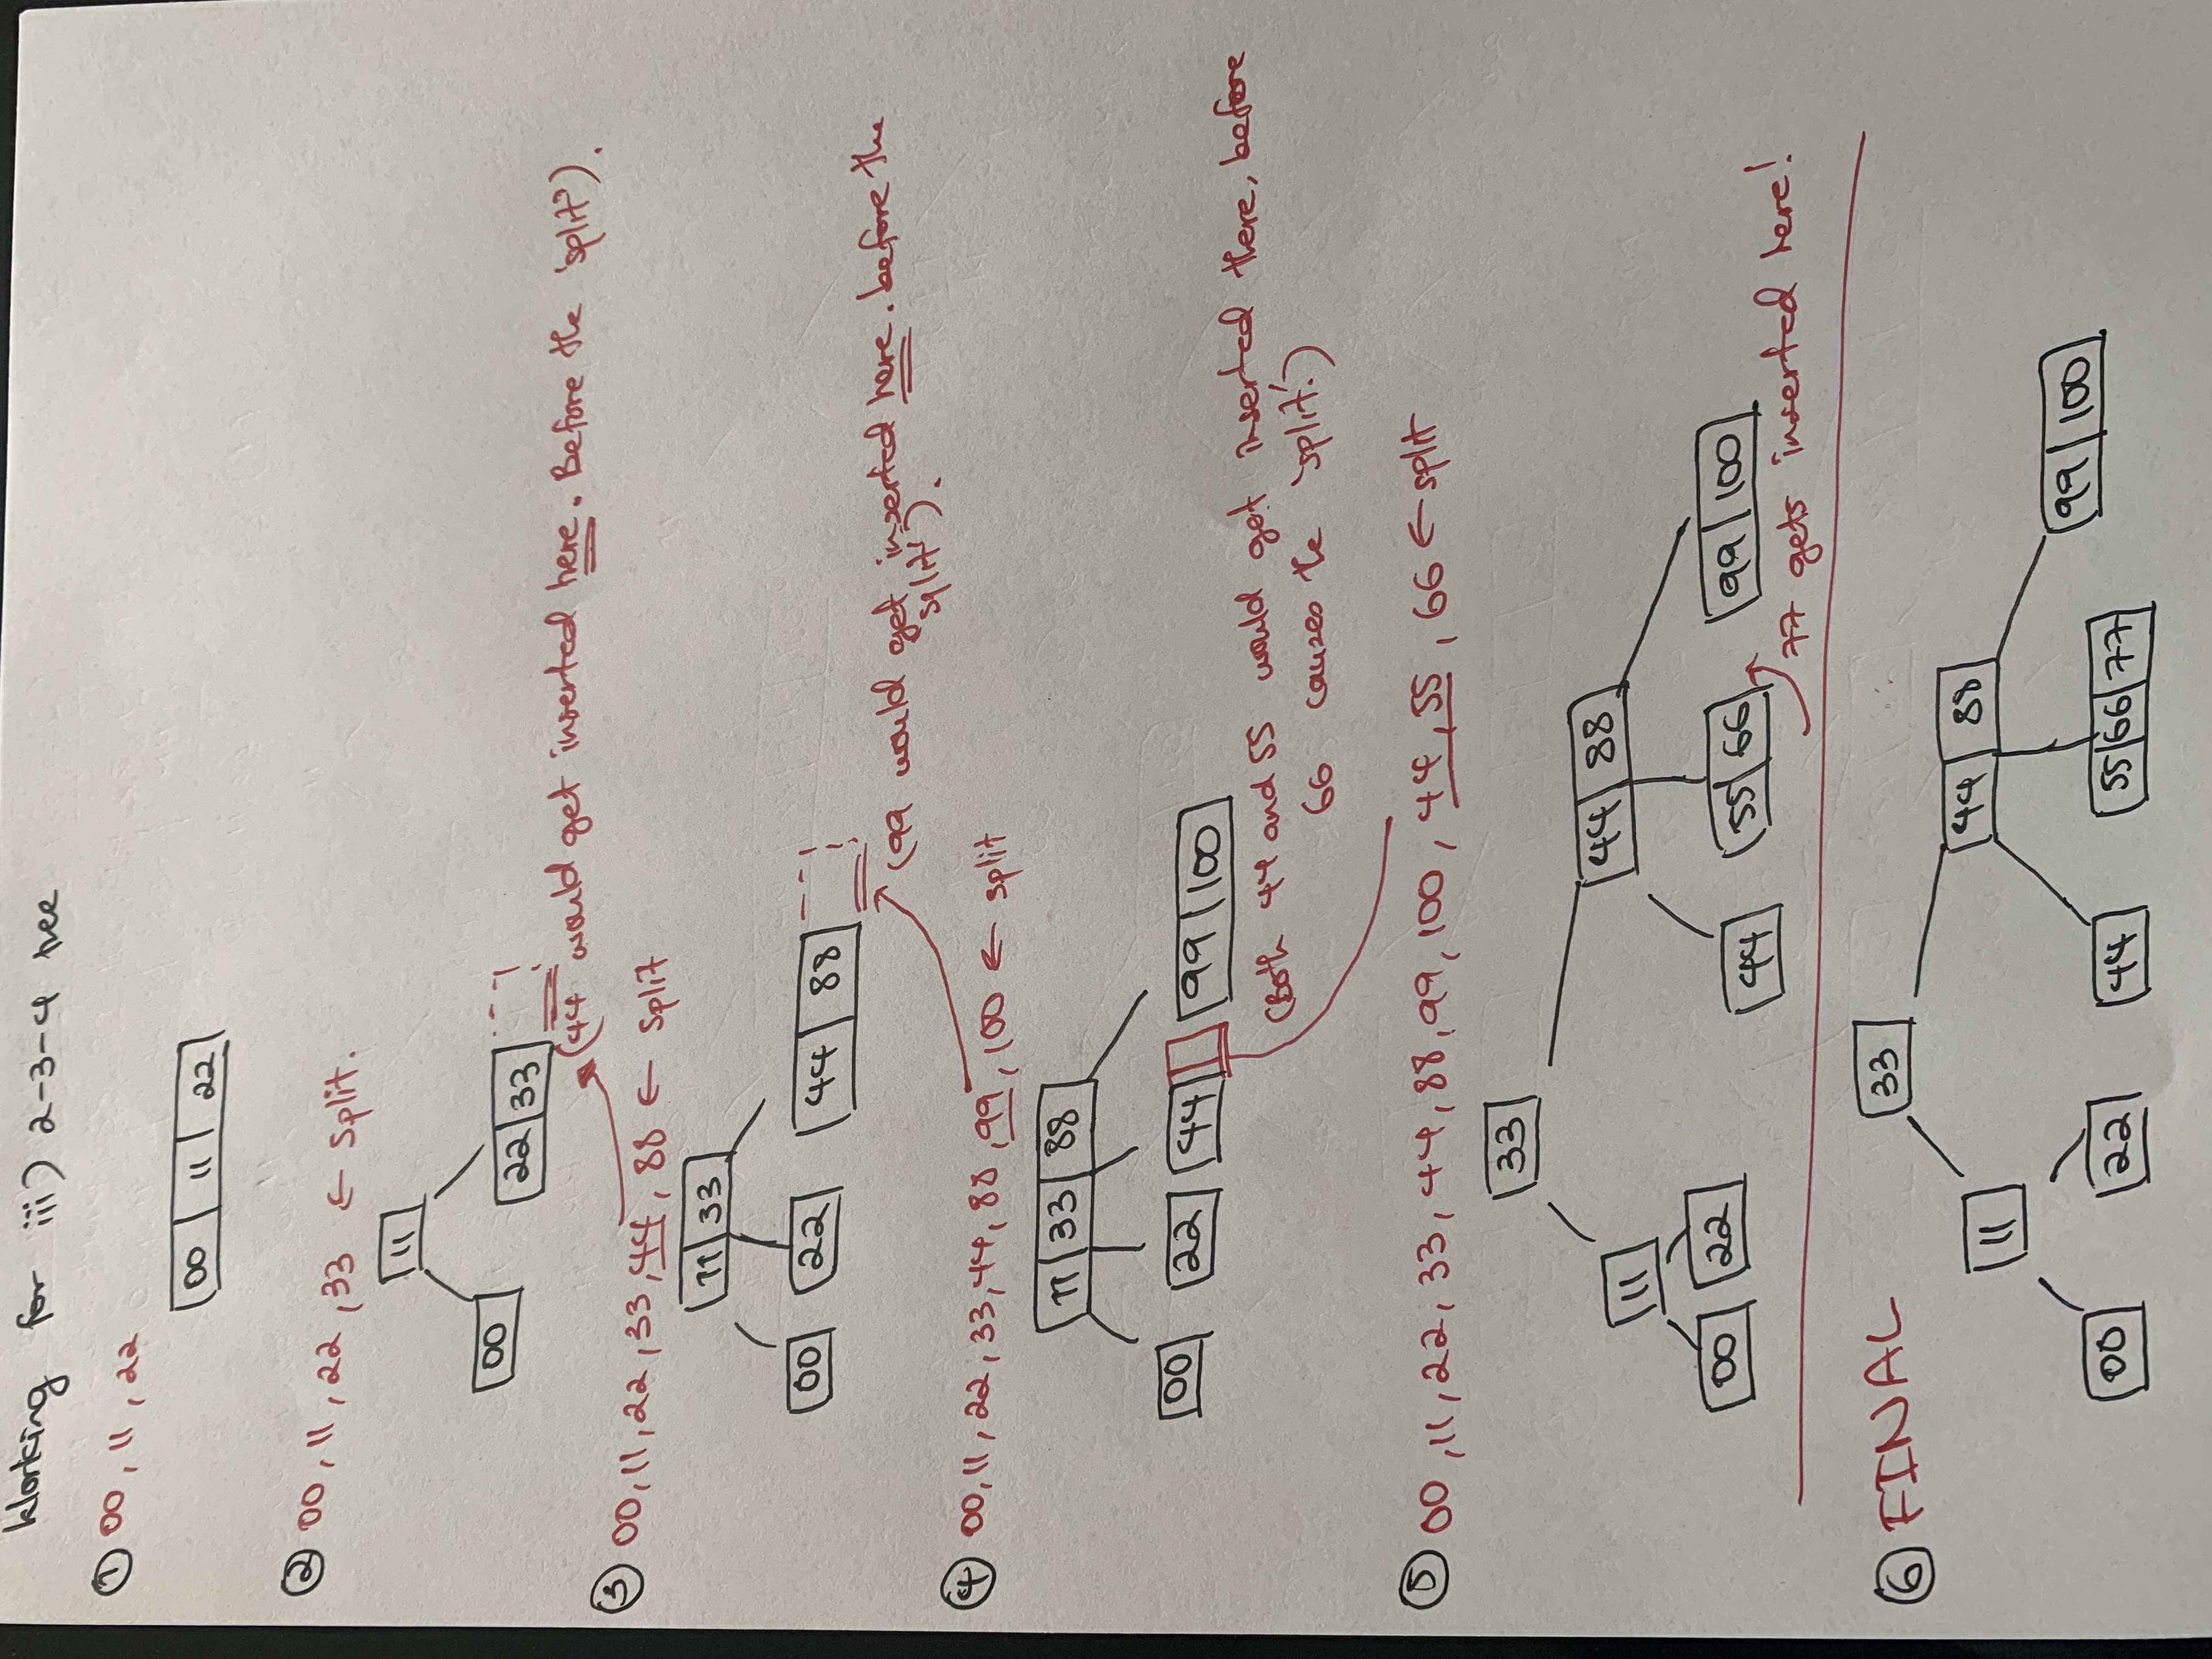 Working for iii) 2-3-4 tree
① 00, 11, 22
00 11 22
② 00, 11, 22, 33 ← split.
11
00 22 33
(44 would get inserted here. Before the 'split').
③ 00, 11, 22, 33, 44, 88 ← split
11 33
00 22 44 88
(99 would get inserted here. before the
'split').
④ 00, 11, 22, 33, 44, 88, 99, 100 ← split
11 33 88
00 22 44 99 100
(Both 44 and 55 would get inserted there, before
66 causes the 'split'.)
⑤ 00, 11, 22, 33, 44, 88, 99, 100, 44, 55, 66 ← split
33
11 44 88
00 22 44 55 66 99 100
77 gets inserted here!
⑥ FINAL
33
11 44 88
00 22 44 55 66 77 99 100